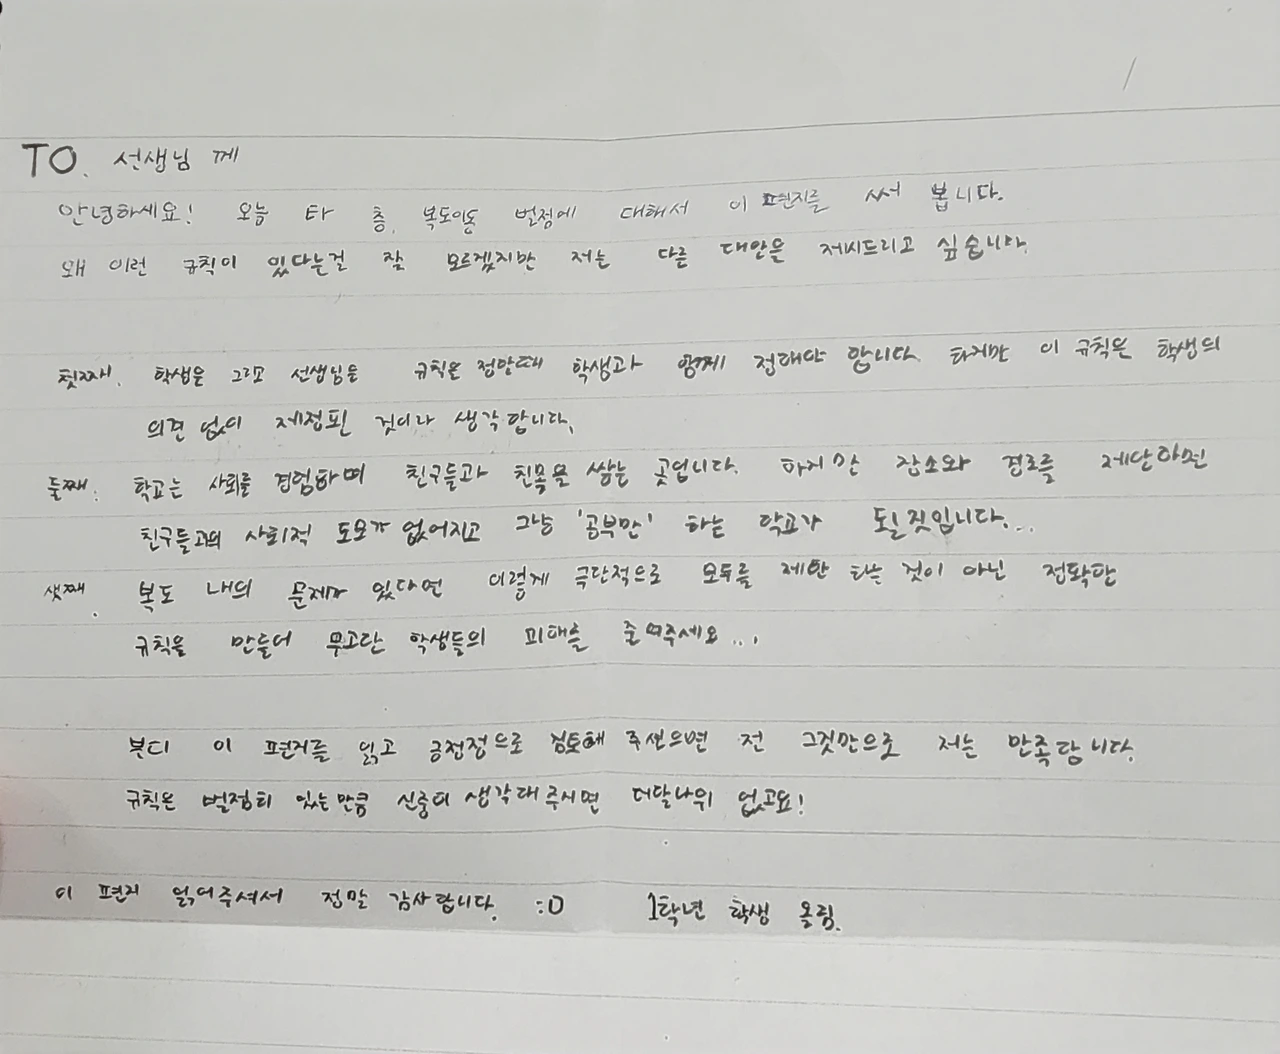 TO. 선생님 께
안녕하세요! 오늘 타 층, 복도이동 벌점에 대해서 이 편지를 써 봅니다.
왜 이런 규칙이 있다는걸 잘 모르겠지만 저는 다른 대안을 제시드리고 싶습니다.
첫째. 학생을 그리고 선생님을 규칙은 정할때 학생과 함께 정해야 합니다. 하지만 이 규칙은 학생의
의견 없이 제정된 것이라 생각합니다.
둘째. 학교는 사회를 경험하며 친구들과 친목을 쌓는 곳입니다. 하지만 장소와 경로를 제단하면
친구들과의 사회적 도모가 없어지고 그냥 '공부만' 하는 학교가 될 짓입니다...
셋째. 복도 내의 문제가 있다면 이렇게 극단적으로 모두를 제한 하는 것이 아닌 정확한
규칙을 만들어 무고한 학생들의 피해를 줄여주세요...
부디 이 편지를 읽고 긍정정으로 검토해 주셨으면 전 그것만으로 저는 만족합니다.
규칙은 벌점히 있는만큼 신중히 생각해주시면 더할나위 없고요!
이 편지 읽어주셔서 정말 감사합니다. :D 1학년 학생 올림.